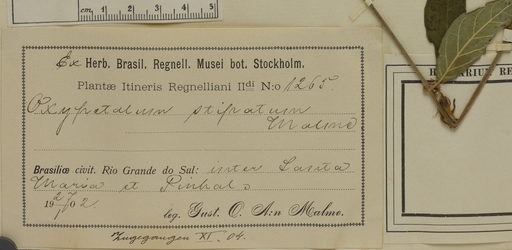 cm 1 2 3 4 5
Ex Herb. Brasil. Regnell. Musei bot. Stockholm.
Plantæ Itineris Regnelliani II di N:o 1265.
Oxypetalum stipatum
Malme
Brasiliæ civit. Rio Grande do Sul: inter Santa
Maria et Pinhal
19 2/1 02.
leg. Gust. O. A:n Malme.
Zugegangen XI. 04.